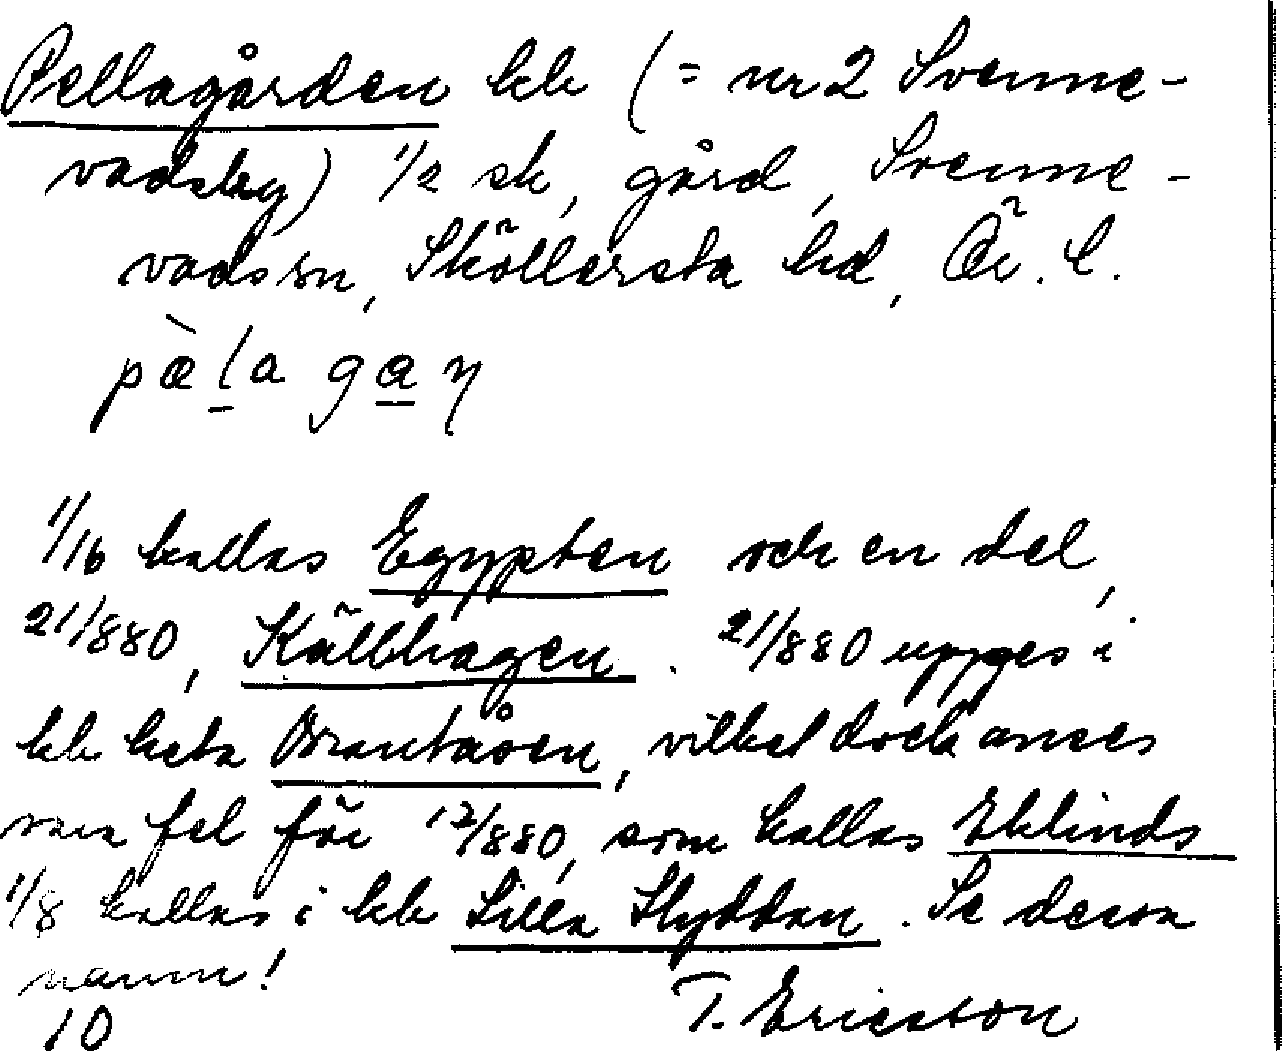 Pellagården kb (= nr 2 Svenne-
vadsby) 1/2 sk, gård, Svenne-
vads sn, Sköllersta hd, Ör. l.
pæ̀la gaŋ
1/16 kallas Egypten och en del,
21/880, Källhagen. 21/880 uppges i
kb heta Brantåsen, vilket dock anses
vara fel för 17/880, som kallas Eklinds
1/8 kallas i kb Lilla Skyddan. Se dessa
namn!
10 T. Ericsson